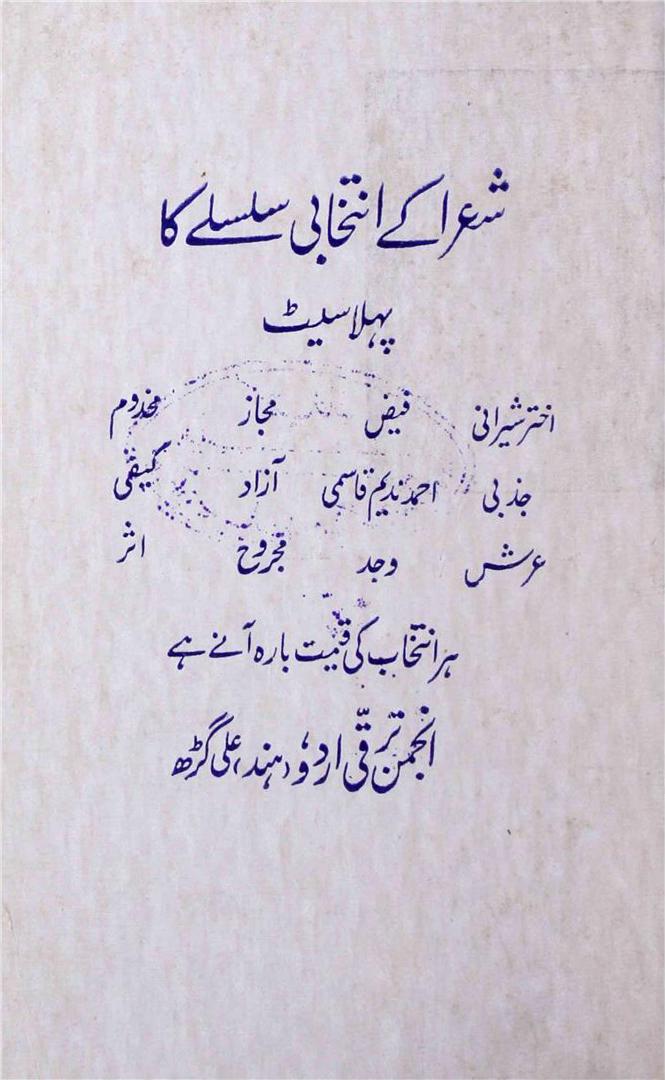 شعرا کے انتخابی سلسلے کا
پہلا سیٹ
اختر شیرانی فیض مجاز مخدوم
جذبی احمد ندیم قاسمی آزاد کیفی
عرش وجد مجروح اثر
ہر انتخاب کی قیمت بارہ آنے ہے
انجمن ترقّی اردو (ہند) علی گڑھ